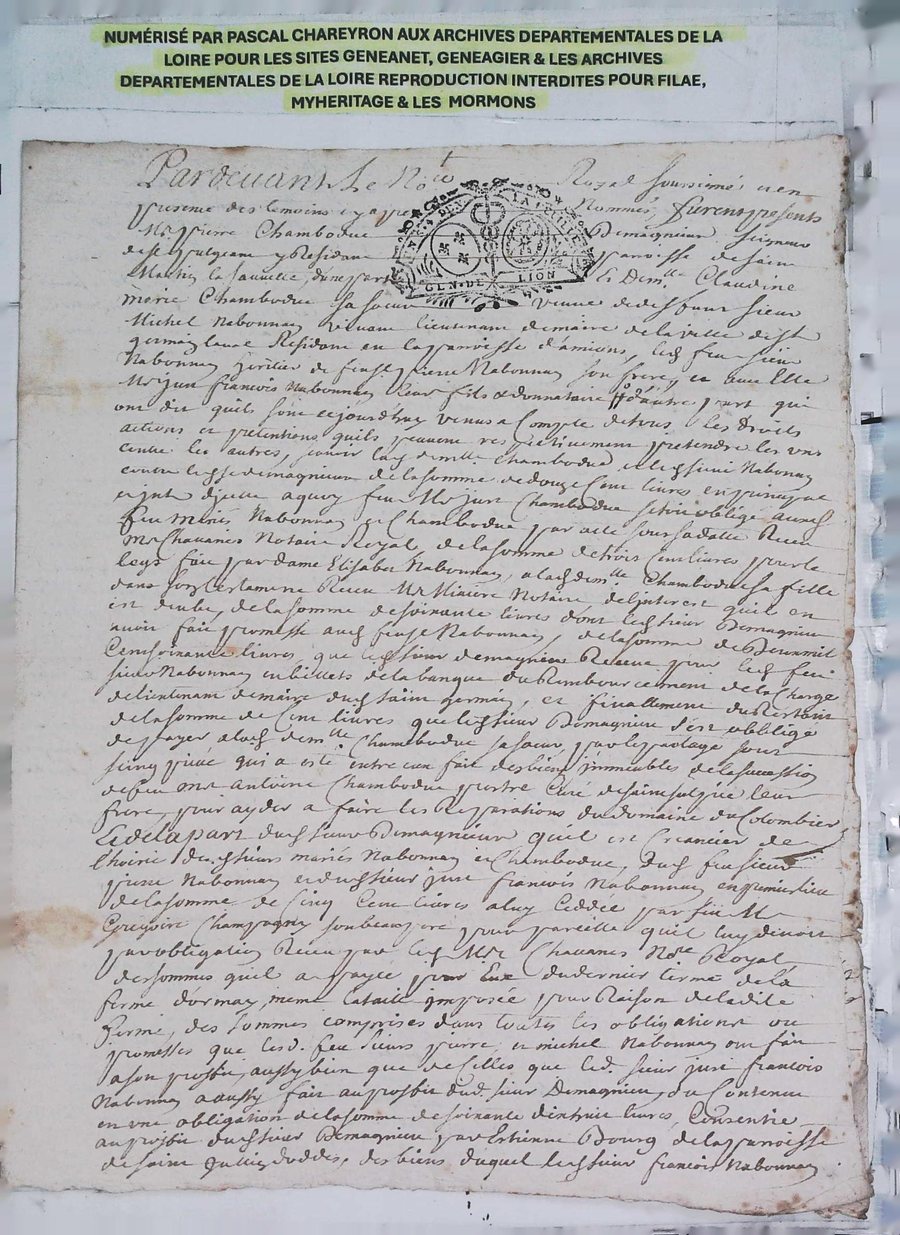 NUMÉRISÉ PAR PASCAL CHAREYRON AUX ARCHIVES DEPARTEMENTALES DE LA
LOIRE POUR LES SITES GENEANET, GENEAGIER & LES ARCHIVES
DEPARTEMENTALES DE LA LOIRE REPRODUCTION INTERDITES POUR FILAE,
MYHERITAGE & LES MORMONS
Pardevant Le No.re Royal soussigné et en
presence des temoins cy apres Nommés, furent presents
Mr pierre Chambodue Demagnieu Seigneur
GEN. DE LION
de st pulgean y Residant paroisse de saint
La Dem.lle Claudine
marie Chambodue sa soeur veuve de deffunt sieur
Michel Nabonnan vivant lieutenant de maire de la ville de st
germain laval Residant en la parroisse d'amions, led feu sieur
Nabonnan heritier de feu sr pierre Nabonnan son frere, et avec elle
Mr just francois Nabonnan leur fils & donnataire d'autre part qui
ont dit quils sont cejourdhuy venus a Compte de tous les droits
actions et pretentions quils peuvent respectivement pretendre les uns
contre les autres, scavoir lad dem.lle Chambodue et led sieur Nabonnan
contre led sr demagnieu de la somme de douze Cent livres en principal
a quoy feu Mr just Chambodue setoit obligé auxd
feu mariés Nabonnan et Chambodue par acte sous sa datte Receu
Me Chavanes Notaire Royal, de la somme de trois Cent livres pour le
legs fait par dame Elisabet Nabonnan, a lad dem.lle Chambodue sa fille
dans son testament Receu Me Notaire de l'interest quil en
est de la somme de soixante livres dont led sieur Demagnieu
avoit fait promesse aud feu sr Nabonnan, de la somme de
Cent soixante livres, que led sieur demagnieu Receut pour led feu
sieur Nabonnan en billets de la banque du Rembourcement de la Charge
de lieutenant de maire dud saint germain, et finallement
de la somme de Cent livres que led sieur Demagnieu s'est obbligé
de payer a lad dem.lle Chambodue sa soeur, par le partage sous
seing privé qui a été entre eux fait des biens immeubles de la succession
de feu mre Antoine Chambodue pretre Curé de saint sulpice leur
frere, pour ayder a faire les Reparations du domaine du Colombier
Et de la part dud sieur Demagnieu quil est Creancier de
l'hoirie desd sieurs mariés Nabonnan et Chambodue, dud feu sieur
pierre Nabonnan et dud sieur just francois Nabonnan en premier lieu
de la somme de Cinq Cent livres a luy Ceddée par feu Mr
Gregoire Champagny son beau pere pour pareille quil luy devoit
par obligation Receu par led Me Chavanes No.re Royal
des sommes quil a payée pour Eux du dernier terme de la
ferme d'ormay, meme la taille imposée pour Raison de ladite
ferme, des sommes comprises dans toutes les obligations ou
promesses que lesd. feu sieurs pierre, et michel Nabonnan ont fait
a son profit, aussy bien que de celles que led. sieur just francois
Nabonnan a aussy fait au profit dud. sieur Demagnieu, du Contenu
en une obligation de la somme de soixante livres, Consentie
au profit dud sieur Demagnieu par Etienne Bourg de la parroisse
de saint Jullien doddes, des biens duquel led sieur francois Nabonnan